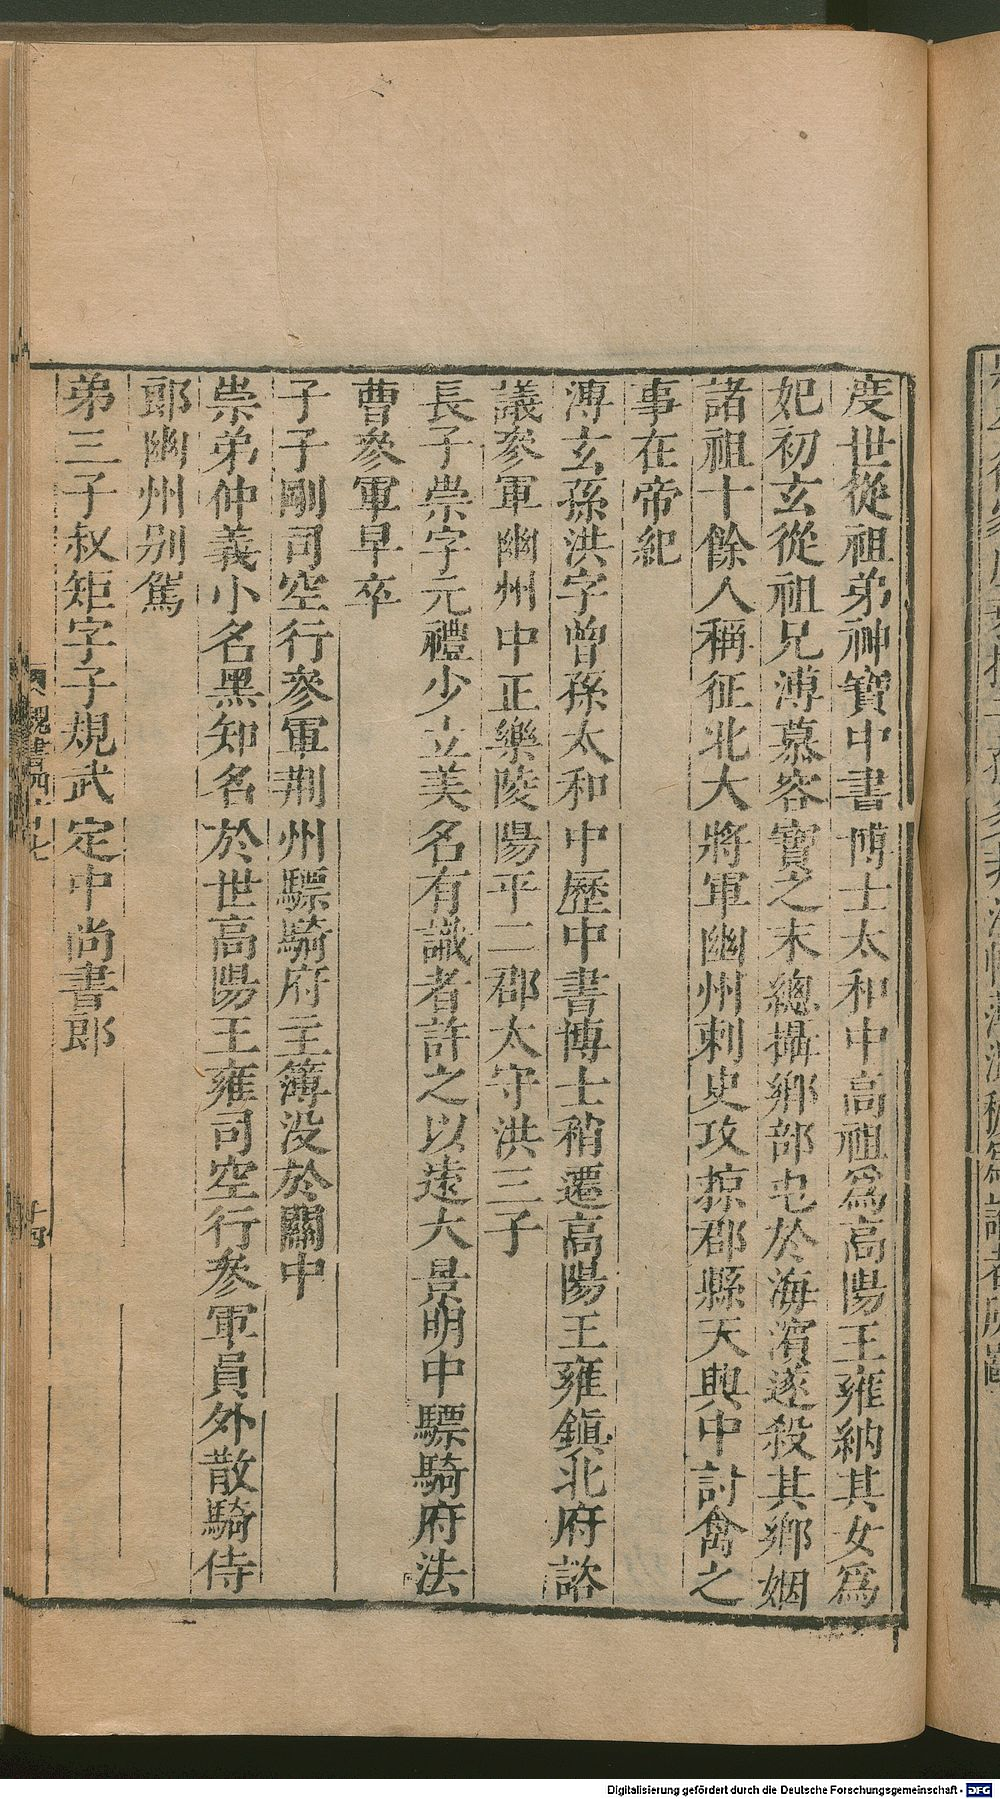 度世從祖弟神寶中書博士太和中高祖爲高陽王雍納其女爲
妃初玄從祖兄溥慕容寶之末總攝鄉部屯於海濱遂殺其鄉姻
諸祖十餘人稱征北大將軍幽州刺史攻掠郡縣天興中討禽之
事在帝紀
溥玄孫洪字曾孫太和中歷中書博士稍遷高陽王雍鎭北府諮
議參軍幽州中正樂陵陽平二郡太守洪三子
長子崇字元禮少立美名有識者許之以遠大景明中驃騎府法
曹參軍早卒
子子剛司空行參軍荆州驃騎府主簿没於關中
崇弟仲義小名黑知名於世高陽王雍司空行參軍員外散騎侍
郎幽州别駕
弟三子叔矩字子規武定中尚書郎
魏書四十七
十四
Digitalisierung gefördert durch die Deutsche Forschungsgemeinschaft - DFG